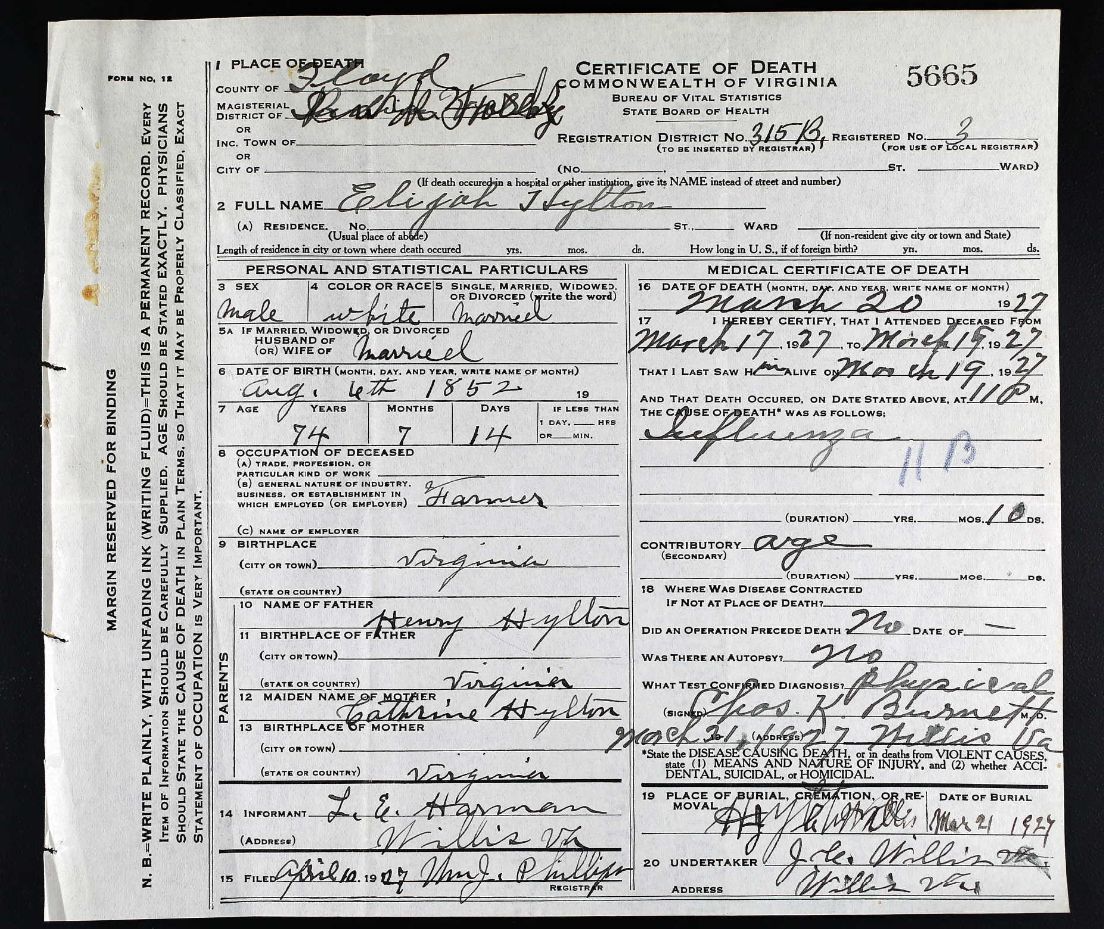 FORM NO. 12
MARGIN RESERVED FOR BINDING
N. B.—WRITE PLAINLY, WITH UNFADING INK (WRITING FLUID)—THIS IS A PERMANENT RECORD. EVERY
ITEM OF INFORMATION SHOULD BE CAREFULLY SUPPLIED. AGE SHOULD BE STATED EXACTLY. PHYSICIANS
SHOULD STATE THE CAUSE OF DEATH IN PLAIN TERMS, SO THAT IT MAY BE PROPERLY CLASSIFIED, EXACT
STATEMENT OF OCCUPATION IS VERY IMPORTANT.
1 PLACE OF DEATH
COUNTY OF Floyd
MAGISTERIAL DISTRICT OF
OR
INC. TOWN OF
OR
CITY OF (No. , ST. WARD)
CERTIFICATE OF DEATH
COMMONWEALTH OF VIRGINIA
BUREAU OF VITAL STATISTICS
STATE BOARD OF HEALTH
5665
REGISTRATION DISTRICT NO. 315B, REGISTERED NO. 3
(TO BE INSERTED BY REGISTRAR) (FOR USE OF LOCAL REGISTRAR)
(If death occured in a hospital or other institution, give its NAME instead of street and number)
2 FULL NAME Elijah Hylton
(A) RESIDENCE. No. ST., WARD
(Usual place of abode) (If non-resident give city or town and State)
Length of residence in city or town where death occured yrs. mos. ds. How long in U. S., if of foreign birth? yrs. mos. ds.
PERSONAL AND STATISTICAL PARTICULARS
3 SEX 4 COLOR OR RACE 5 SINGLE, MARRIED, WIDOWED, OR DIVORCED (write the word)
male white married
5A IF MARRIED, WIDOWED, OR DIVORCED
HUSBAND OF
(OR) WIFE OF married
6 DATE OF BIRTH (MONTH, DAY, AND YEAR, WRITE NAME OF MONTH)
Aug. 6th 1852 19
7 AGE YEARS MONTHS DAYS IF LESS THAN
1 DAY, HRS
OR MIN.
74 7 14
8 OCCUPATION OF DECEASED
(A) TRADE, PROFESSION, OR
PARTICULAR KIND OF WORK
(B) GENERAL NATURE OF INDUSTRY.
BUSINESS, OR ESTABLISHMENT IN
WHICH EMPLOYED (OR EMPLOYER) Farmer
(C) NAME OF EMPLOYER
9 BIRTHPLACE
(CITY OR TOWN) Virginia
(STATE OR COUNTRY)
PARENTS
10 NAME OF FATHER
Henry Hylton
11 BIRTHPLACE OF FATHER
(CITY OR TOWN)
(STATE OR COUNTRY) Virginia
12 MAIDEN NAME OF MOTHER
Cathrine Hylton
13 BIRTHPLACE OF MOTHER
(CITY OR TOWN)
(STATE OR COUNTRY) Virginia
14 INFORMANT L. E. Harman
(ADDRESS) Willis Va
15 FILED April 10. 1927 Wm J. Phillips
REGISTRAR
MEDICAL CERTIFICATE OF DEATH
16 DATE OF DEATH (MONTH, DAY, AND YEAR, WRITE NAME OF MONTH)
March 20 1927
17 I HEREBY CERTIFY, THAT I ATTENDED DECEASED FROM
March 17, 1927, TO March 19, 1927
THAT I LAST SAW H im ALIVE ON March 19, 1927
AND THAT DEATH OCCURED, ON DATE STATED ABOVE, AT 11 P M.
THE CAUSE OF DEATH* WAS AS FOLLOWS:
Influenza
11 B
(DURATION) YRS. MOS. 10 DS.
CONTRIBUTORY age
(SECONDARY)
(DURATION) YRS. MOS. DS.
18 WHERE WAS DISEASE CONTRACTED
IF NOT AT PLACE OF DEATH?
DID AN OPERATION PRECEDE DEATH No DATE OF —
WAS THERE AN AUTOPSY? No
WHAT TEST CONFIRMED DIAGNOSIS? Physical
(SIGNED) Chas. K. Burnett M. D.
March 21, 1927 (ADDRESS) Willis Va
*State the DISEASE CAUSING DEATH, or in deaths from VIOLENT CAUSES,
state (1) MEANS AND NATURE OF INJURY, and (2) whether ACCI-
DENTAL, SUICIDAL, or HOMICIDAL.
19 PLACE OF BURIAL, CREMATION, OR RE-
MOVAL DATE OF BURIAL
Mar 21 1927
20 UNDERTAKER J. C. Willis
ADDRESS Willis Va